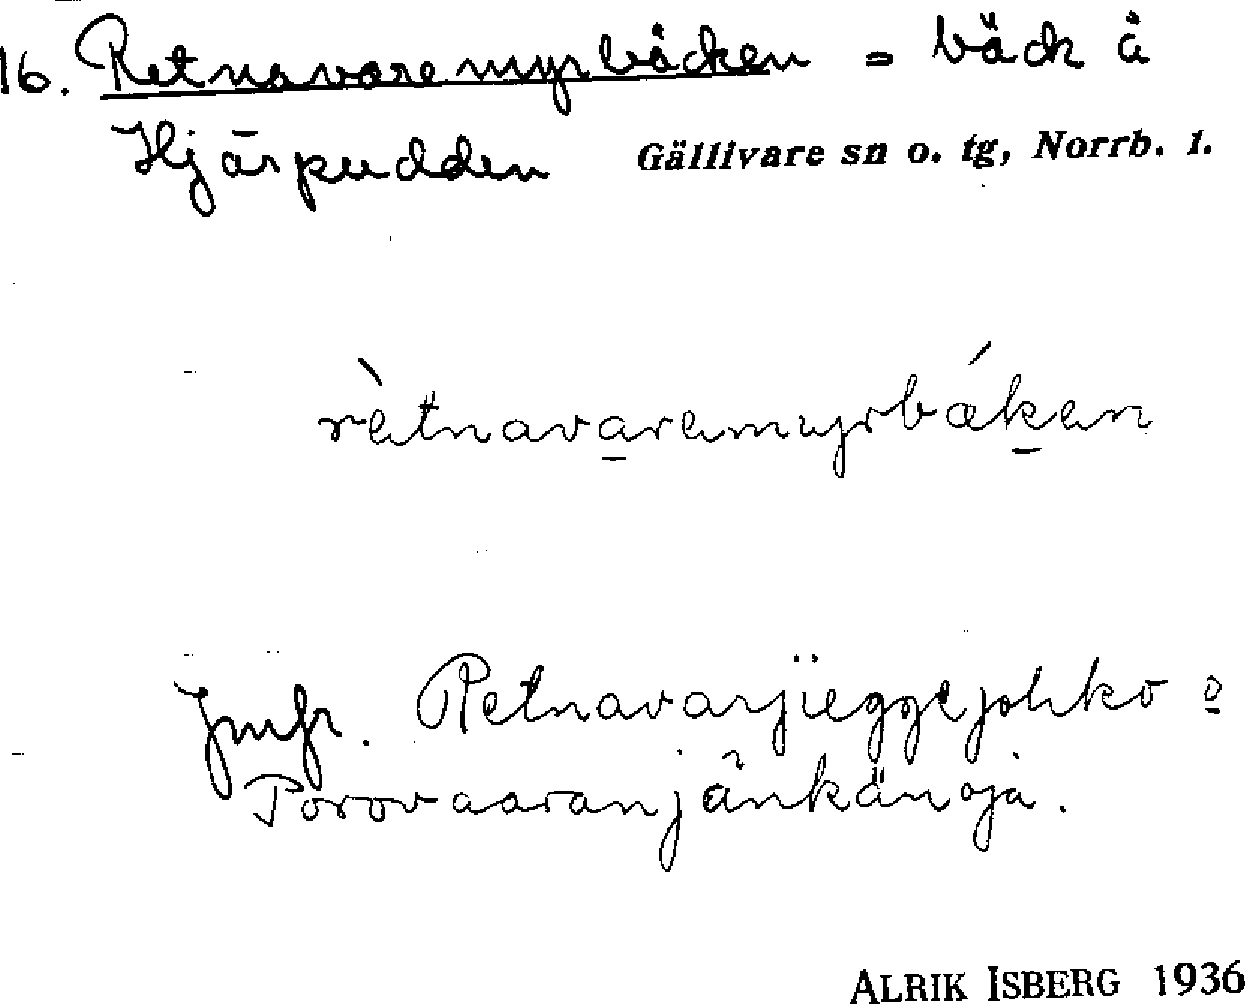 16. Retnavaremyrbäcken = bäck å
Hjärpudden Gällivare sn o. tg, Norrb. l.
rètnavaremyrbæken
Jmfr. Retnavarjieggejohko o
Porovaaranjänkänoja.
ALRIK ISBERG 1936